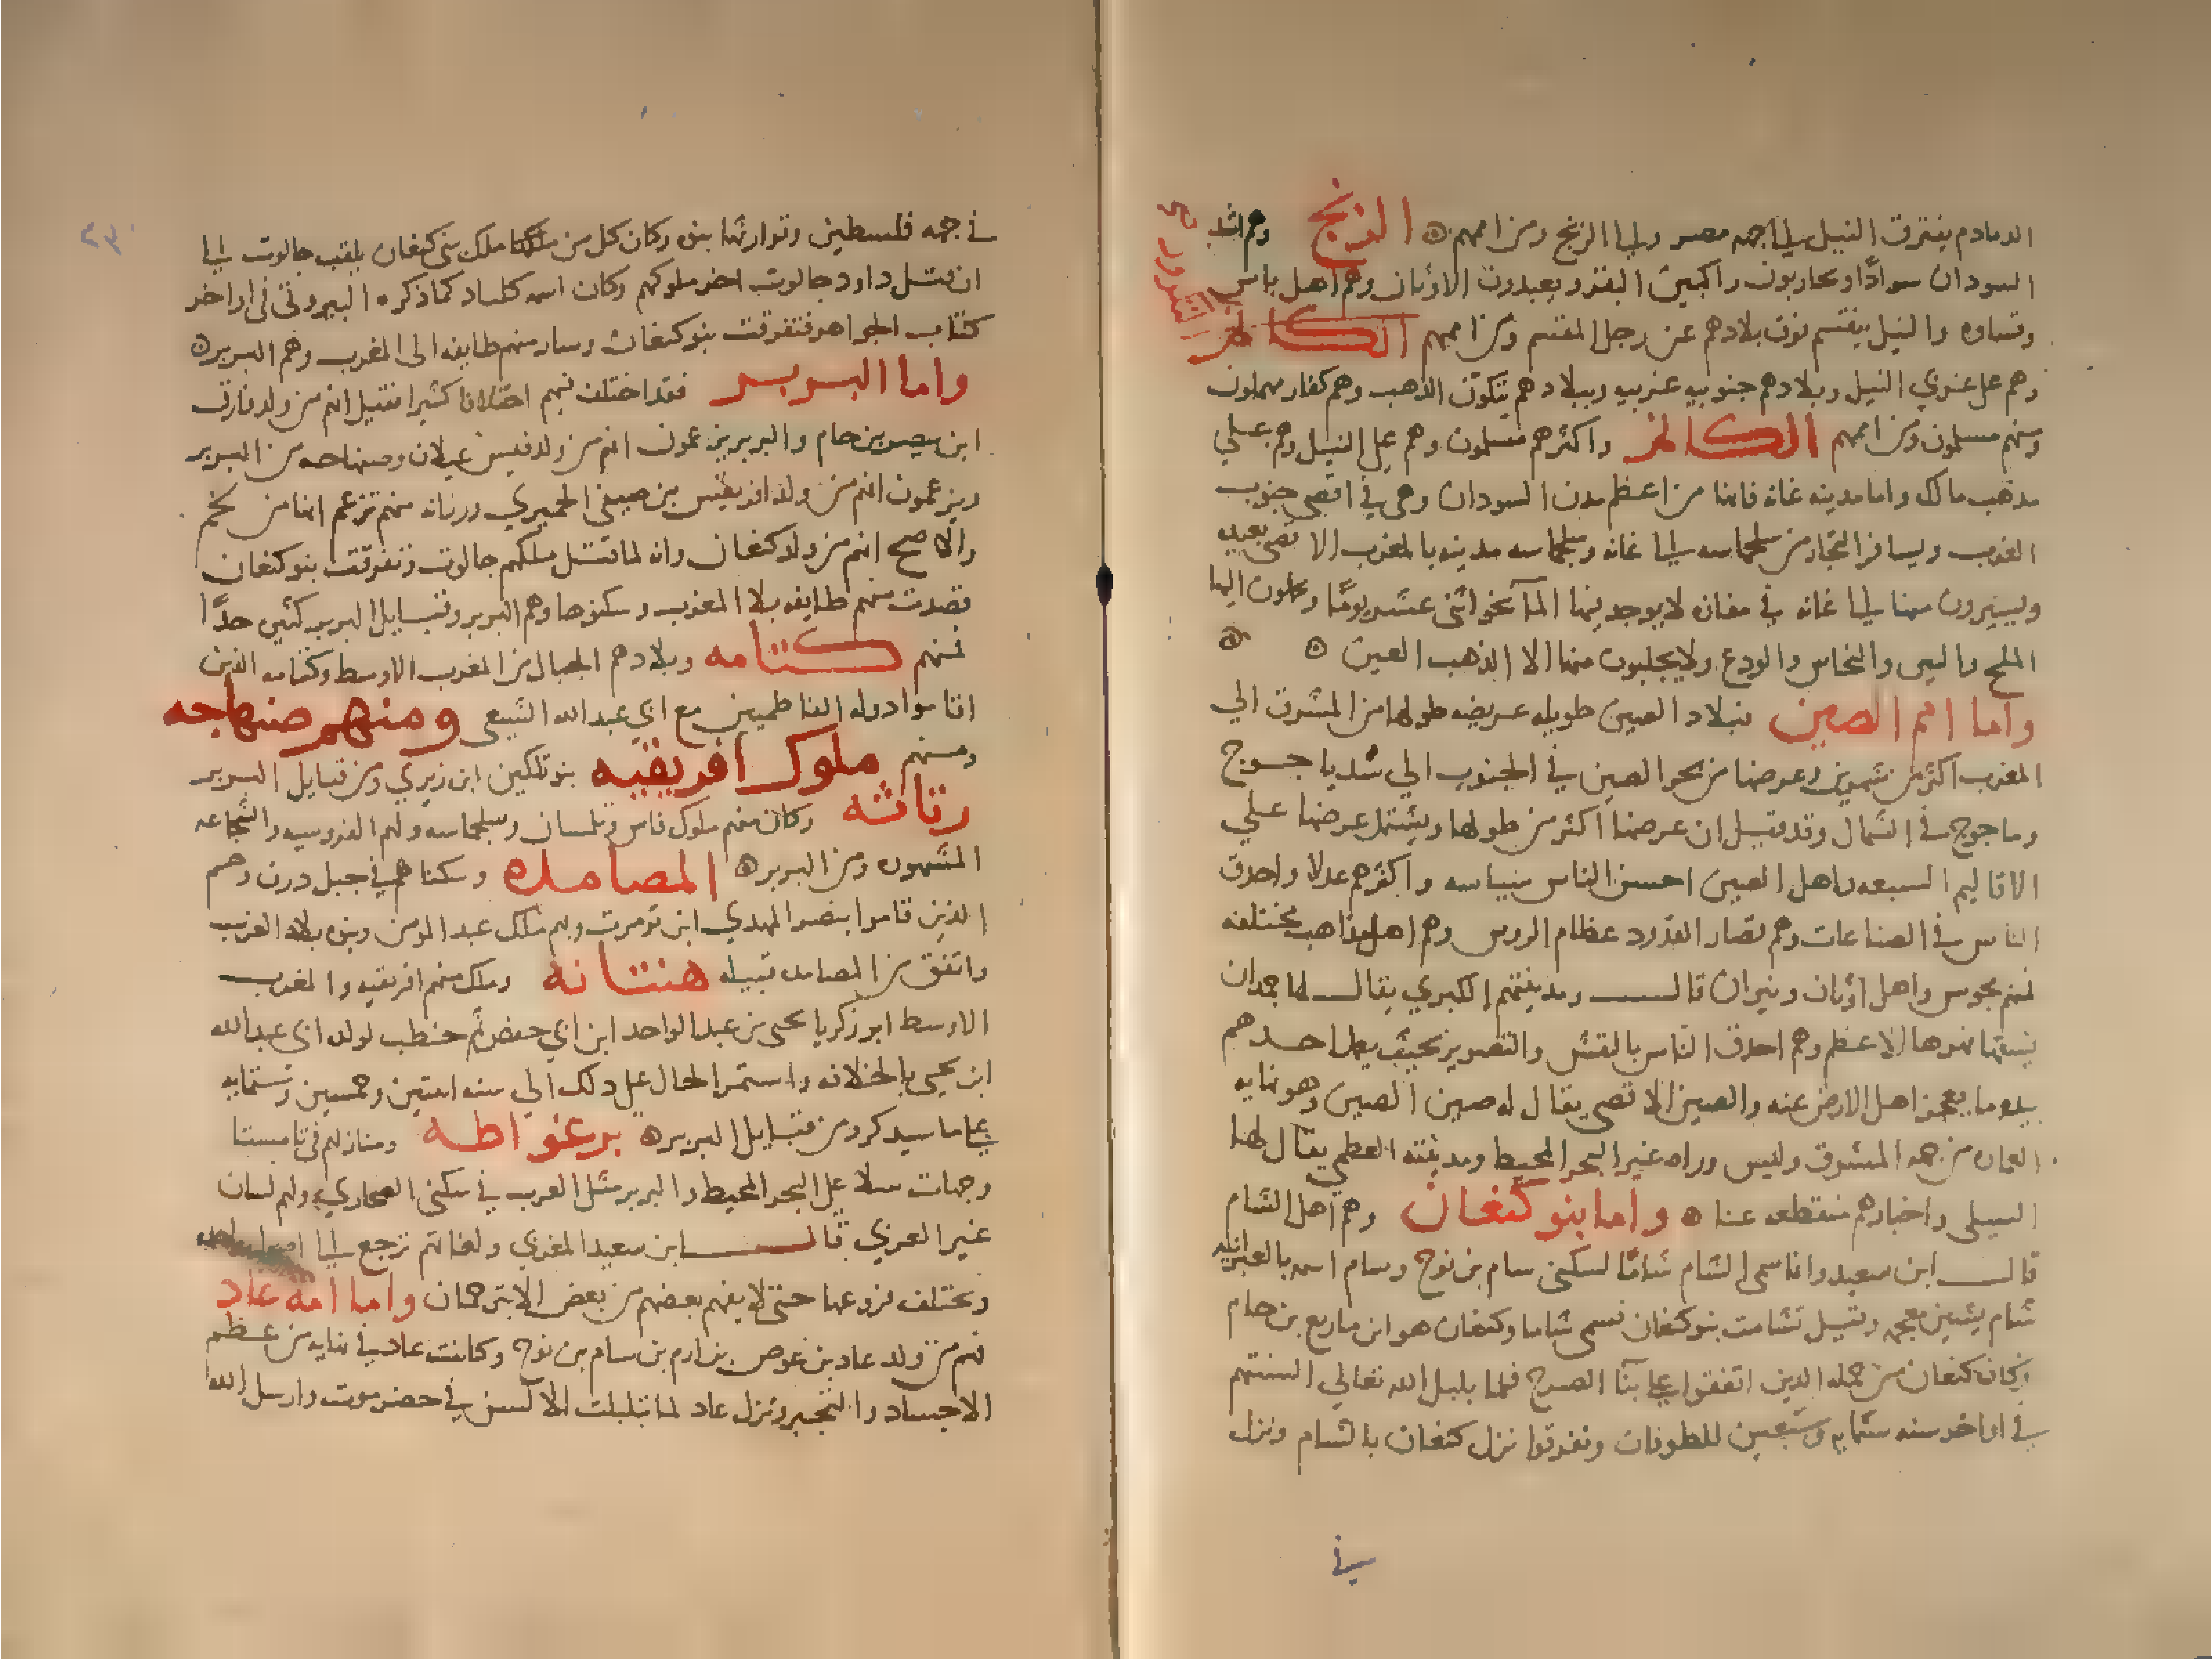 الدمادم يفترق النيل الي جهه مصر والي الزنج ومن اممهم ۞ الزنج وهم اشد
السودان سوادًا ويحاربون راكبين البقر ويعبدون الاوثان وهم اهل باس
وقساوه والنيل ينقسم فوق بلادهم عن رجل المقسم ومن اممهم
وهم علي غربي النيل وبلادهم جنوبيه غربيه وببلادهم يتكون الذهب وهم كفار مهملون
ومنهم مسلمون ومن اممهم الكانم واكثرهم مسلمون وهم علي النيل وهم علي
مذهب مالك واما مدينه غانه فانها من اعظم مدن السودان وهي في اقصي جنوب
الغرب ويسافر التجار من سلجماسه الي غانه وسلجماسه مدينه بالمغرب الاقصي بعيده
ويسيرون منها الي غانه في مفازه لا يوجد فيها الماء نحو اثني عشر يومًا ويحملون اليها
الملح والتين والنحاس والودع ولا يجلبون منها الا الذهب العين ۞ ۞
واما امم الصين فبلاد الصين طويله عريضه طولها من المشرق الي
المغرب اكثر من شهرين وعرضها من بحر الصين في الجنوب الي سد ياجوج
وماجوج في الشمال وقد قيل ان عرضها اكثر من طولها ويشتمل عرضها علي
الاقاليم السبعه واهل الصين احسن الناس سياسه واكثرهم عدلا واحذق
الناس في الصناعات وهم قصار القدود عظام الروس وهم اهل مذاهب مختلفه
فمنهم مجوس واهل اوثان ونيران قال ومدينتهم الكبري يقال لها جمدان
يشقها نهرها الاعظم وهم احذق الناس بالنقش والتصوير بحيث يعمل احدهم
بيده ما يعجز اهل الارض عنه والصين الاقصي يقال له صين الصين وهو نهايه
العمان من جهه المشرق وليس وراه غير البحر المحيط ومدينته العظمي يقال لها
السيلي واخبارهم منقطعه عنا ۞ واما بنو كنعان وهم اهل الشام
قال ابن سعيد وانما سمي الشام شامًا لسكني سام بن نوح وسام اسمه بالعبرانيه
شام بشين معجمه وقيل تشامت بنو كنعان فسمي شاما وكنعان هو ابن ماريع بن حام
وكان كنعان من جمله الذين اتفقوا علي بنآ الصرح فلما بلبل الله تعالي السنتهم
في اواخر سنه ستمايه وسبعين للطوفان وتفرقوا نزل كنعان بالشام ونزل
في
في جهه فلسطين وتوارثها بنوه وكان كل من ملكها ملك بني كنعان يلقب جالوت الي
ان قتل داود جالوت اخر ملوكهم وكان اسمه كلياد كما ذكره البيروني في اواخر
كتاب الجواهر فتفرقت بنو كنعان وسار منهم طايفه الي المغرب وهم البربر ۞
واما البربر فقد اختلف فيهم اختلافا كثيرا فقيل انهم من ولد فارق
ابن بيصر بن حام والبربر يزعمون انهم من ولد قيس عيلان وصنهاجه من البربر
يزعمون انهم من ولد افريقيس بن صيفي الحميري وزناته منهم تزعم انها من لخم
والاصح انهم من ولد كنعان وانه لما قتل ملكهم جالوت وتفرقت بنو كنعان
قصدت منهم طايفه بلاد المغرب وسكنوها وهم البربر وقبايل البربر كثير جدًا
فمنهم كتامه وبلادهم الجبال من المغرب الاوسط وكتامه الذين
اقاموا دوله الفاطميين مع ابي عبد الله الشيعي ومنهم صنهاجه
ومنهم ملوك افريقيه بنو بلكين ابن زيري ومن قبايل البربر
زناته وكان منهم ملوك فاس وتلمسان وسلجماسه ولهم الفروسيه والشجاعه
المشهوره ومن البربر ۞ المصامده وسكناهم في جبل درن وهم
الذين قاموا بنصر المهدي ابن تومرت وبهم ملك عبد المومن وبنوه بلاد الغرب
واتفق من المصامده قبيله هنتانه وملك منهم افريقيه والمغرب
الاوسط ابو زكريا يحيي بن عبد الواحد ابن ابي حفص ثم خطب لولده ابي عبد الله
ابن يحيي بالخلافه واستمر الحال علي ذلك الي سنه اثنتين وخمسين وستمايه
علي ما سيذكر ومن قبايل البربر ۞ برغواطه ومنازلهم في تامسنا
وجهات سلا علي البحر المحيط والبربر مثل العرب في سكني الصحاري ولهم لسان
غير العربي قال ابن سعيد المغربي ولغاتهم ترجع الي
وتختلف فروعها حتي لا يفهم بعضهم من بعض الا بترجمان واما امه عاد
فهم من ولد عاد بن عوص بن ارم بن سام بن نوح وكانت عاد في نهايه من عظم
الاجساد والتجبر ونزل عاد لما تبلبلت الالسن في حضرموت وارسل الله